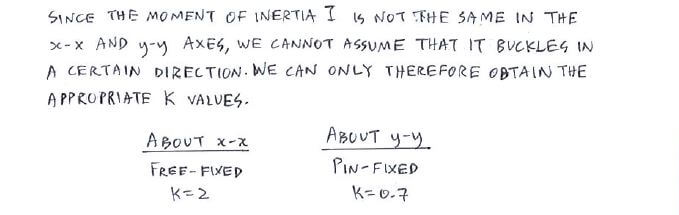 SINCE THE MOMENT OF INERTIA I IS NOT THE SAME IN THE
x-x AND y-y AXES, WE CANNOT ASSUME THAT IT BUCKLES IN
A CERTAIN DIRECTION. WE CAN ONLY THEREFORE OBTAIN THE
APPROPRIATE K VALUES.
ABOUT x-x
FREE-FIXED
K=2
ABOUT y-y
PIN-FIXED
K=0.7